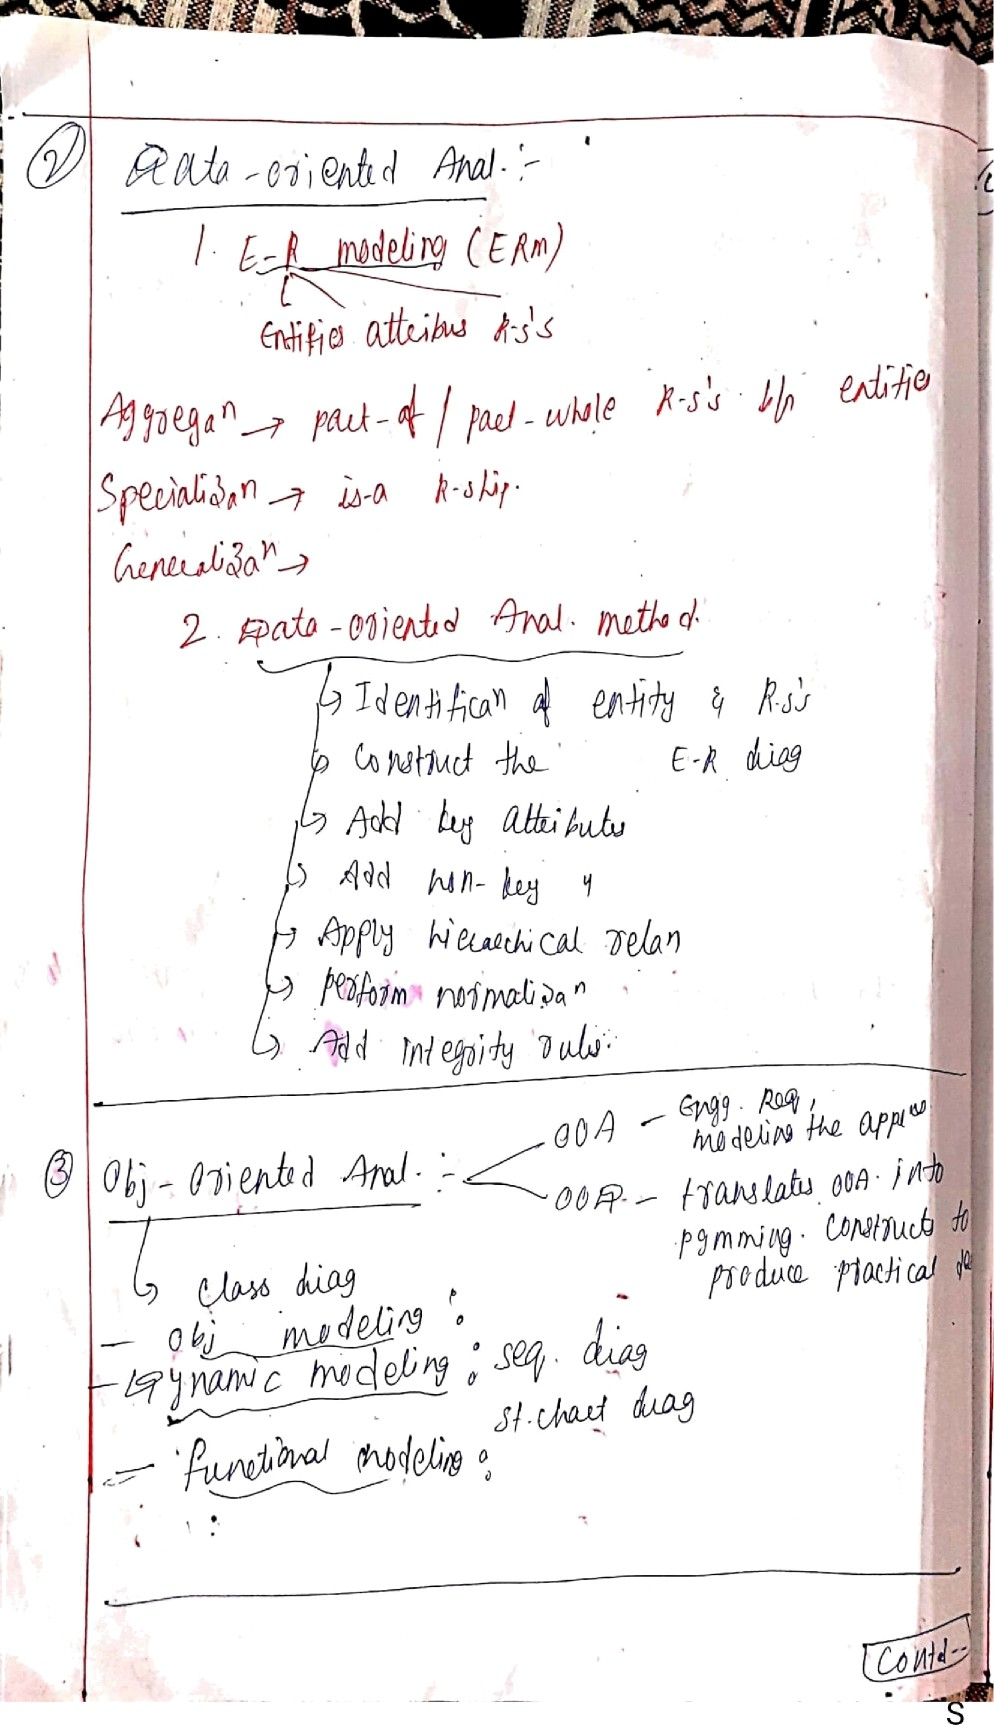 ② Data-oriented Anal. :-
1. E-R modeling (ERM)
Entities attribus R-s's
Aggregaⁿ → part-of / part-whole R-s's b/n entitie
Specializaⁿ → is-a R-ship.
Generalizaⁿ →
2. Data-oriented Anal. method.
↳ Identificaⁿ of entity & R-s's
↳ Construct the E-R diag
↳ Add key attributes
↳ Add non-key "
↳ Apply hierarchical relan
↳ perform normalizaⁿ
↳ Add integrity rules.
③ Obj-Oriented Anal. :-
OOA - Engg. Req, modeling the
OOD - translates OOA into
pgmming. constructs to
produce practical
↳ Class diag
- Obj modeling :
- Dynamic modeling : seq. diag
st. chart diag
- functional modeling :
Contd--
S